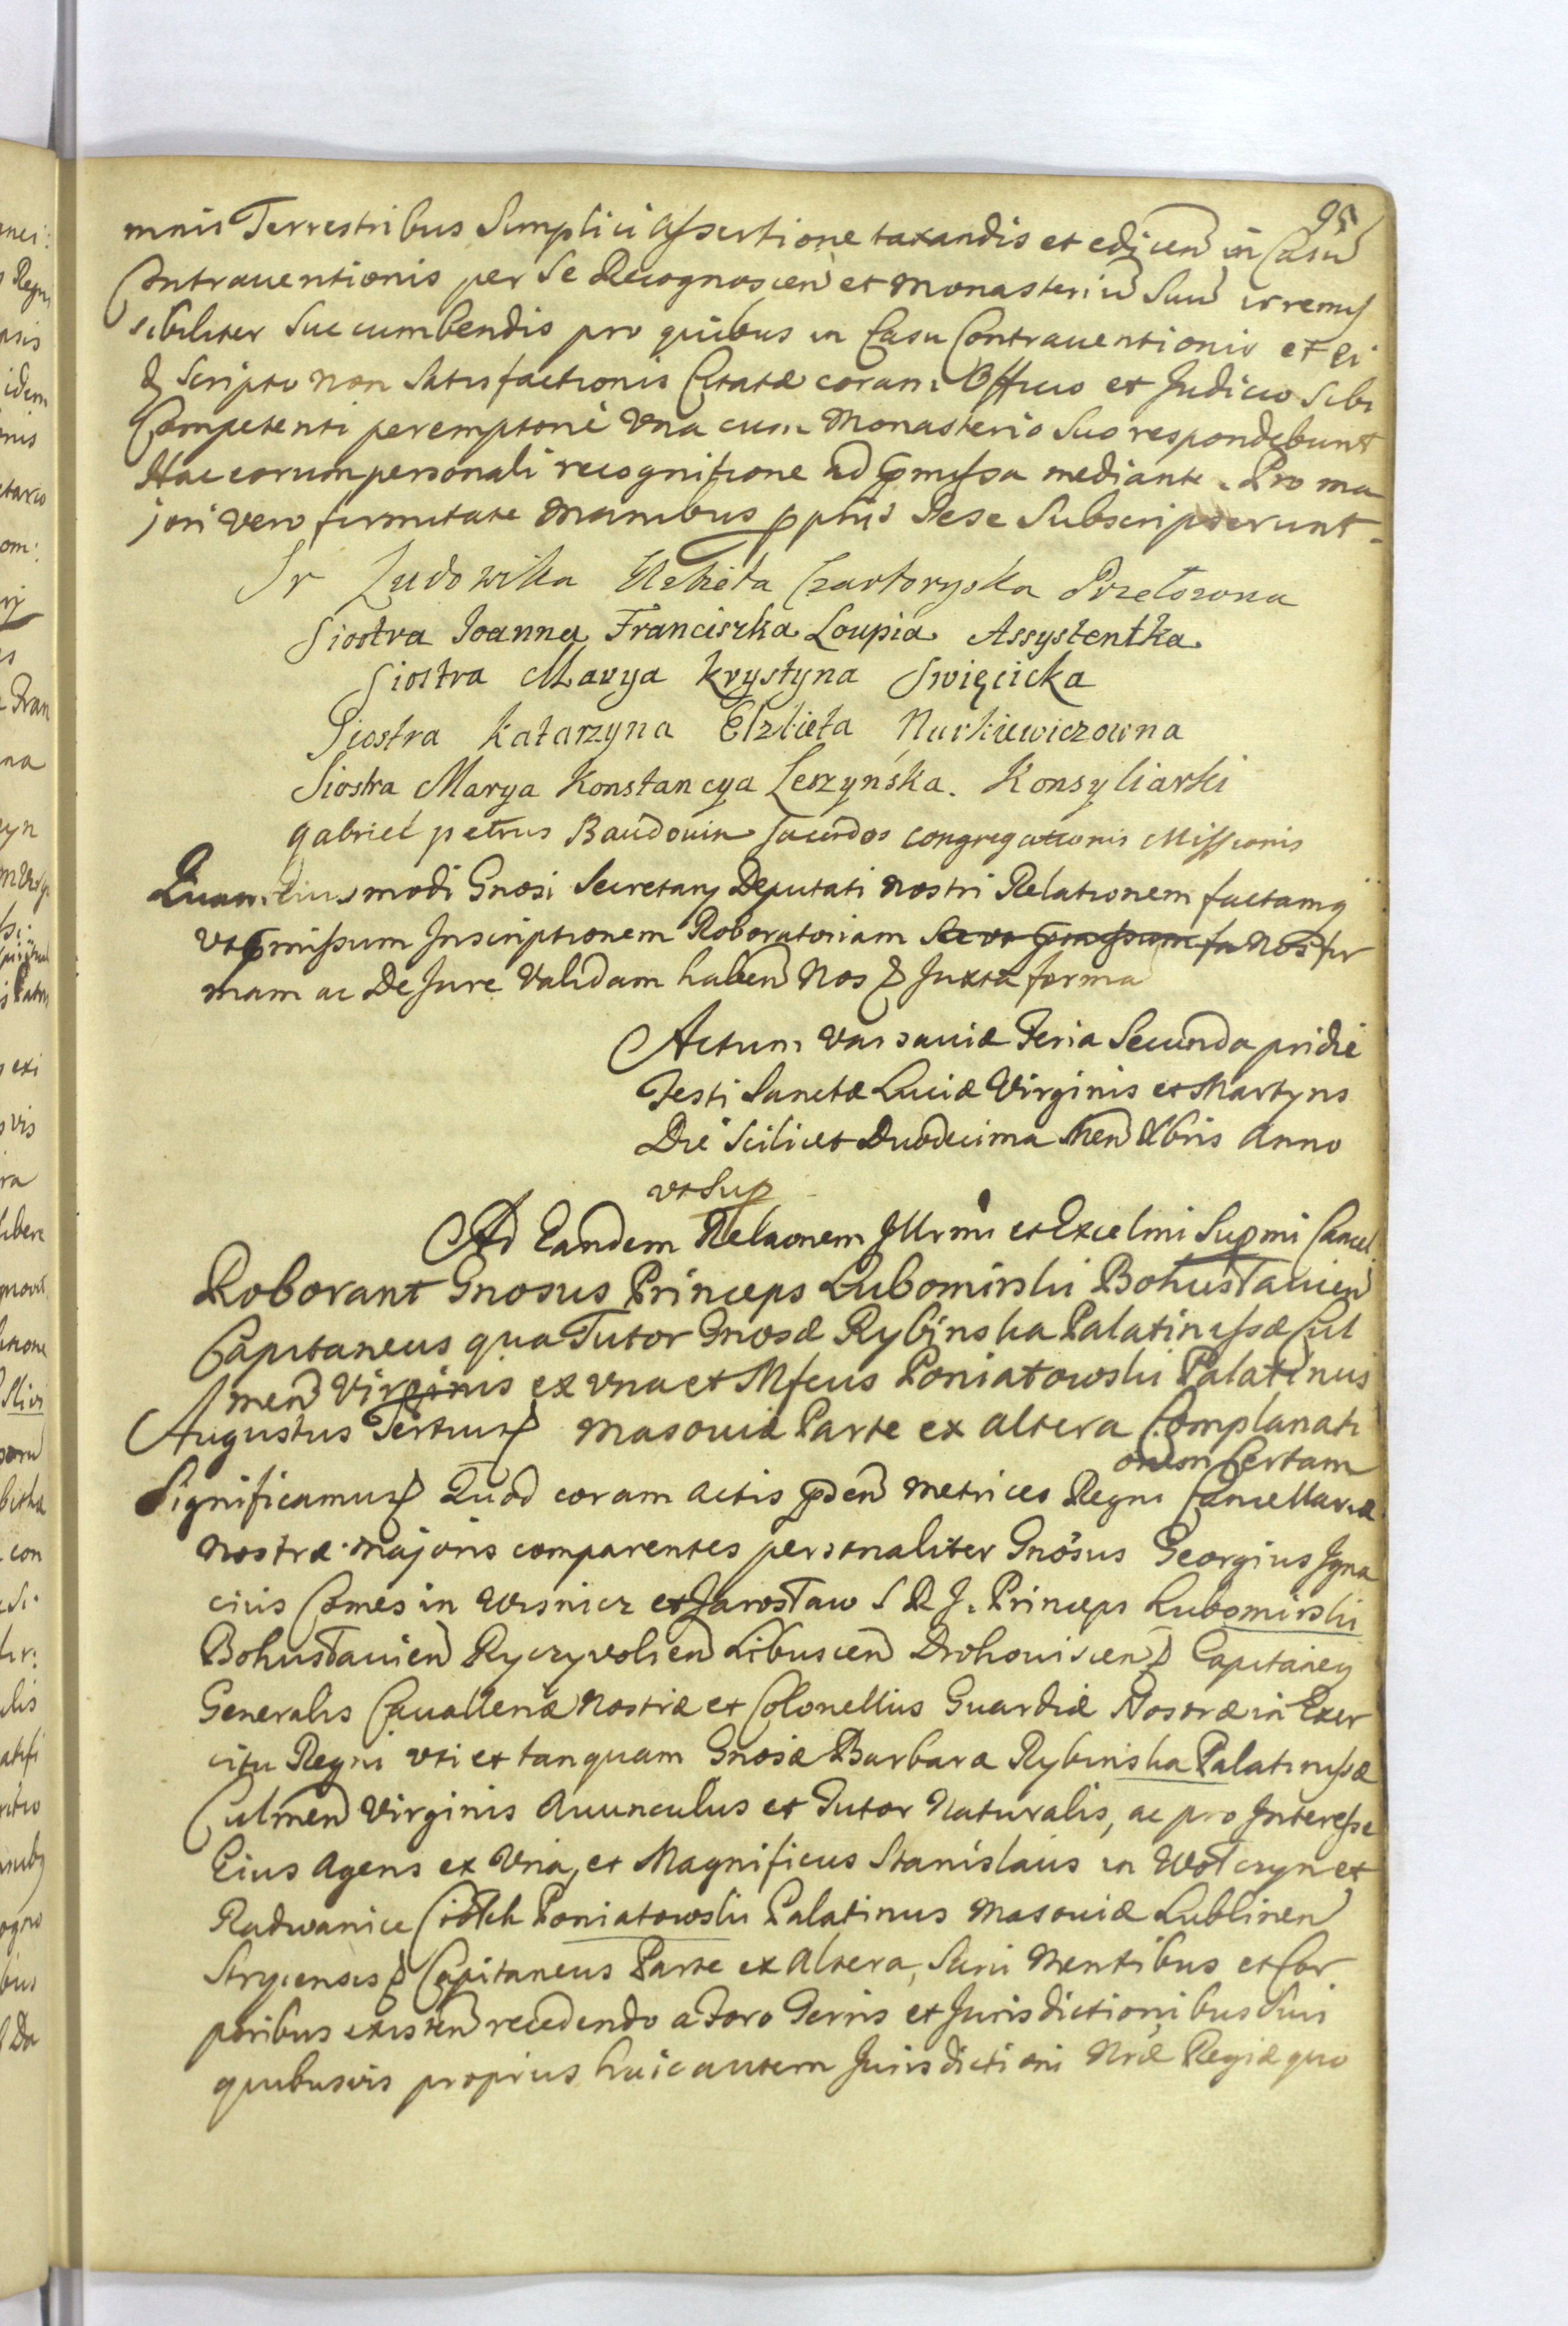 95
mnis Terrestribus Simplici assertione taxandis et edicen in Casu
Contrauentionis per Se Recognoscen et Monasteriu Suu irremis
sibiliter Succumbendis pro quibus in Casu Contrauentionis et ei
Scripto non Satisfactionis Citatæ coram Officio et Judicio Sibi
Competenti peremptorie Vna cum Monasterio Suo respondebunt
Hac eorum personali recognitione ad pmissa mediante. Pro ma
jori vero firmitate Manibus pprijs Sese Subscripserunt.
Sr Ludowika Elzbieta Czartoryska Przełozona
Siostra Joanna Franciszka Loupia Assystentka
Siostra Marya krystyna Swięcicka
Siostra katarzyna Elzbieta Nurkiewiczowna
Siostra Marya Konstancya Leszynska. Konsyliarki
gabriel petrus Baudouin Sacerdos congregationis Missionis
Quam eiusmodi Gnosi Secretarij Deputati Nostri Relationem factamq
vt pmissum Inscriptionem Roboratoriam Nos fir
mam ac De Jure Validam haben Nos Juxta forma
Actum Varsauiæ Feria Secunda pridie
Festi Sanctæ Luciæ Virginis et Martyris
Die Scilicet Duodecima Men Xbris Anno
vt Sup
Ad Eandem Relaonem Illrmi et Excelmi Supmi Cancel.
Roborant Gnosus Princeps Lubomirski Bohusławien
Capitaneus qua Tutor Gnosæ Rybinska Palatinissæ Cul
men Virginis ex vna et Mfcus Poniatowski Palatinus
Augustus Tertius Masouiæ Parte ex altera Complanati
onem Certam
Significamus Quod coram Actis pden Metrices Regni Cancellariæ
nostræ Majoris comparentes personaliter Gnosus Georgius Igna
cius Comes in Wisnicz et Jarosław S R J. Princeps Lubomirski
Bohusławien Ryczyvolien Libuscen Drohouiscen Capitaneq
Generalis Cauelleriæ Nostræ et Colonellus Guardiæ Nostræ in Exer
citu Regni vti et tanquam Gnosæ Barbaræ Rybinska Palatinissæ
Culmen Virginis Auunculus et Tutor Naturalis, ac pro Interesse
Eius Agens ex Vna, et Magnificus Stanislaus in Wołczyn et
Radwanice Ciołek Poniatowski Palatinus Masouiæ Lublinen
Stryiensis Capitaneus Parte ex Altera, Sani Mentibus et Cor
poribus existen recedendo a Foro Terris et Jurisdictionibus Sui
quibusvis proprius huic autem Jurisdictioni Nræ Regiæ quo